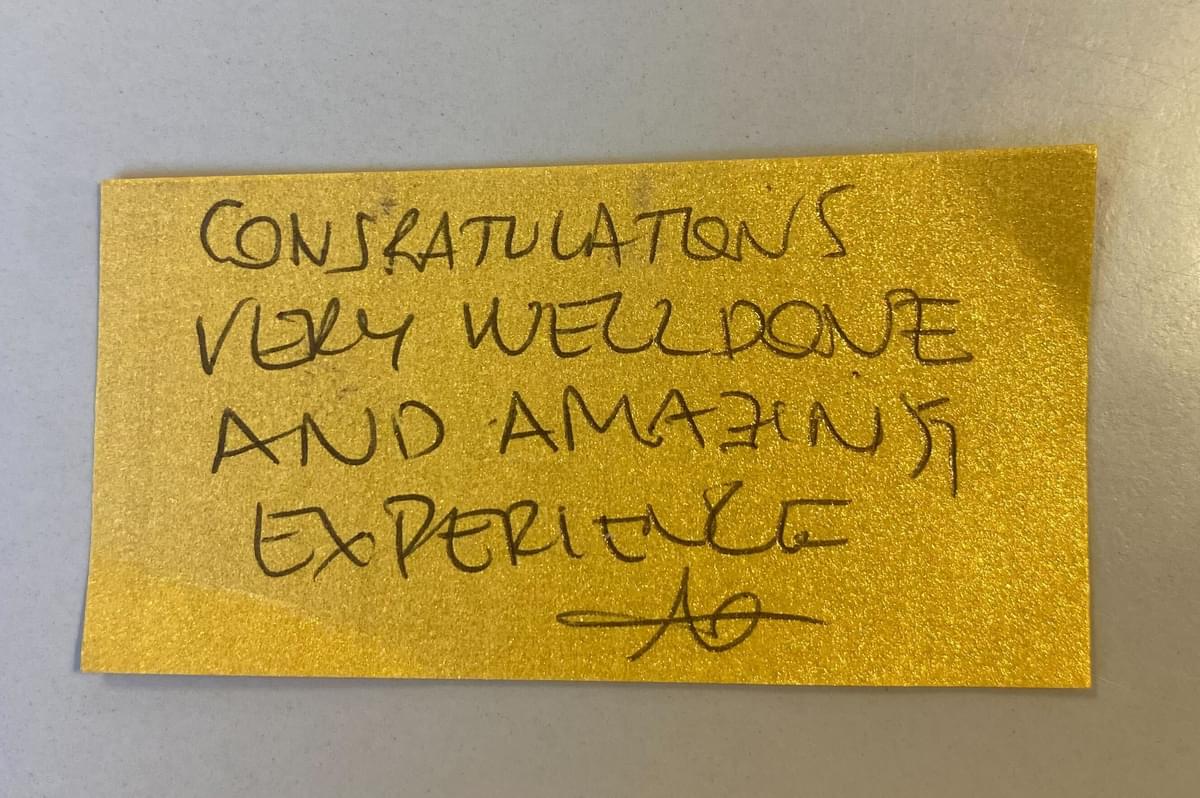 CONGRATULATIONS
VERY WELL DONE
AND AMAZING
EXPERIENCE